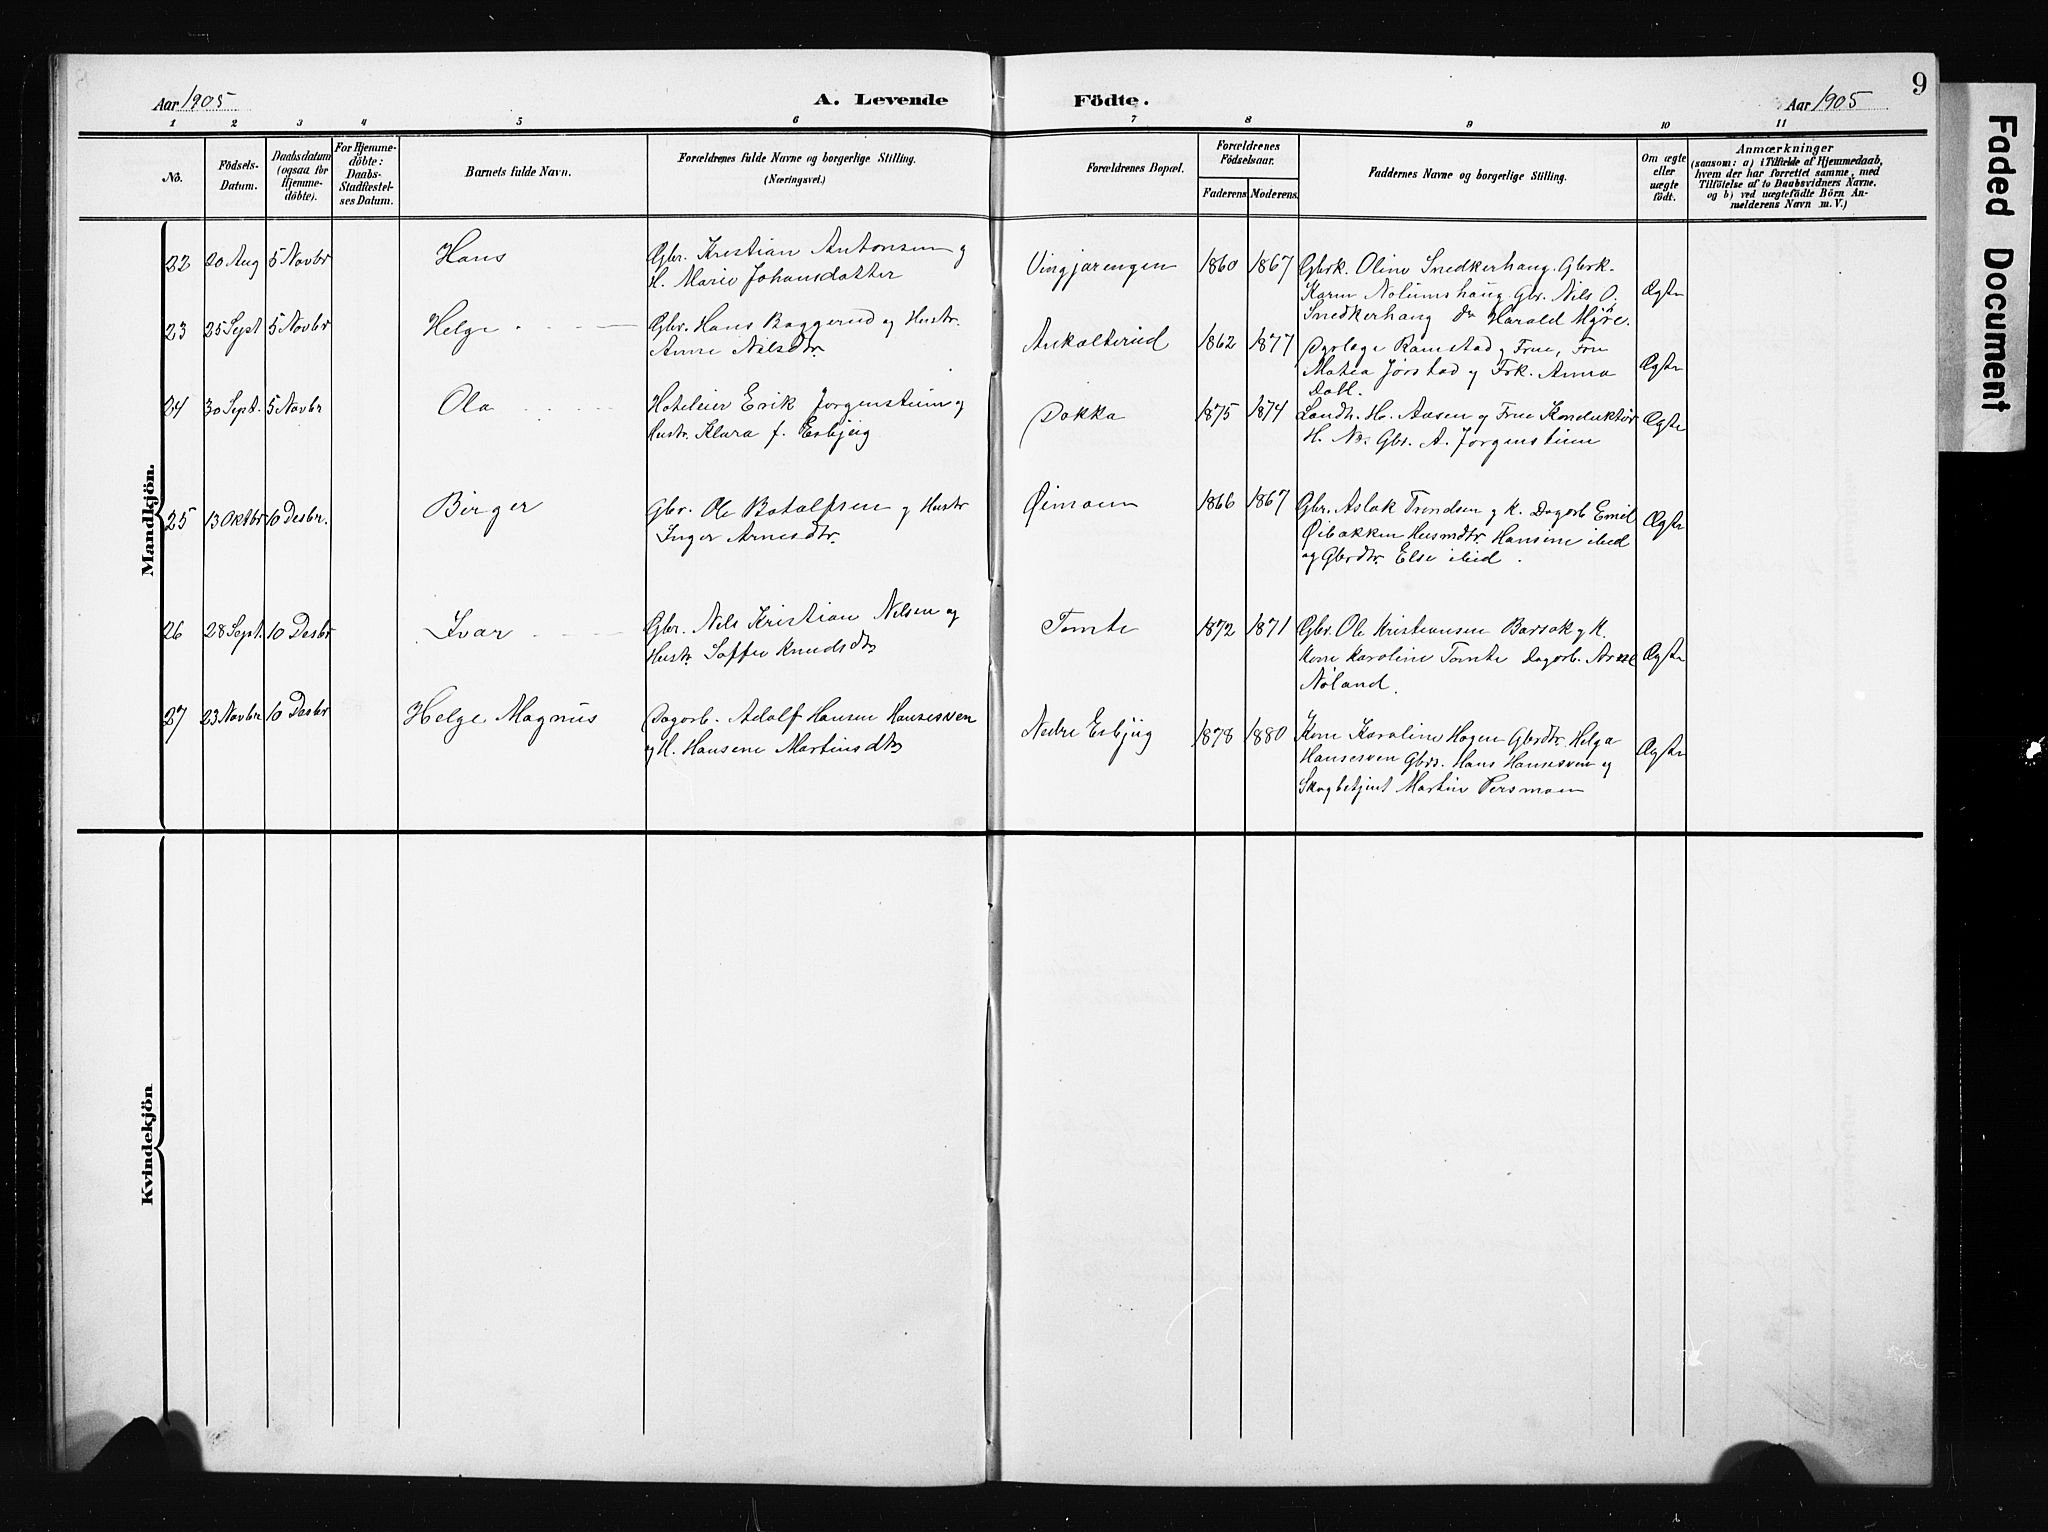 Aar 1905
A. Levende Födte.
Aar 1905
9
Faded Document
1 2 3 4 5 6 7 8 9 10 11
No.
Födsels-
Datum.
Daabsdatum
(ogsaa for
Hjemme-
döbte).
For Hjemme-
döbte:
Daabs-
Stadfæstel-
ses Datum.
Barnets fulde Navn.
Forældrenes fulde Navne og borgerlige Stilling.
(Næringsvei.)
Forældrenes Bopæl.
Forældrenes
Födselsaar.
Faderens Moderens.
Faddernes Navne og borgerlige Stilling.
Om ægte
eller
uægte
födt.
Anmærkninger
(saasom: a) i Tilfælde af Hjemmedaab,
hvem der har forrettet samme, med
Tilföielse af to Daabsvidners Navne.
og b) ved uægtefödte Börn An-
melderens Navn m. V.)
Mandkjön.
22 20 Aug 5 Novbr Hans
Gbr. Kristian Antonsen og
H. Marie Johansdatter
Vingjarengen 1860 1867
Gbrk. Oline Snedkerhaug. Gbrk.
Karen Nolumshaug Gbr. Nils O.
Snedkerhaug Harald Myre.
Ægte
23 25 Sept 5 Novbr Helge
Gbr. Hans Baggerud og Hustr.
Anne Nilsdtr.
Ankalterud 1862 1877
Dyrlæge Ramstad og Frue, Fru
Matea Jørstad og Frk. Anna
Dahl.
Ægte
24 30 Sept. 5 Novbr Ola
Hoteleier Erik Jorgenstuen og
Hustr. Klara f. Esbjug
Dokka 1875 1874
Landh. H. Aasen og Frue Konduktør
H. Gbr. A. Jorgenstuen
Ægte
25 13 Oktbr 10 Desbr. Birger
Gbr. Ole Botolfsen og Hustr
Inger Arnesdtr.
Øimoen 1866 1867
Gbr. Aslak Trondsen og K. Dagarb Emil
Øibakken Husmdtr. Hansine ibid
og Gbrdtr. Else ibid.
Ægte
26 28 Sept. 10 Desbr Ivar
Gbr. Nils Kristian Nilsen og
Hustr. Soffie Knudsdtr
Tomte 1872 1871
Gbr. Ole Kristiansen Barsok og K.
Kone Karoline Tomte Dagarb. Arne
Nøland.
Ægte
27 23 Novbr 10 Desbr Helge Magnus
Dagarb. Adolf Hansen Hansesven
og H. Hansine Martinsdtr
Nedre Esbjug 1878 1880
Kone Karoline Hagen Gbrdtr. Helga
Hansesven Gbrs. Hans Hansesven og
Skogbetjent Martin Persmoen
Ægte
Kvindekjön